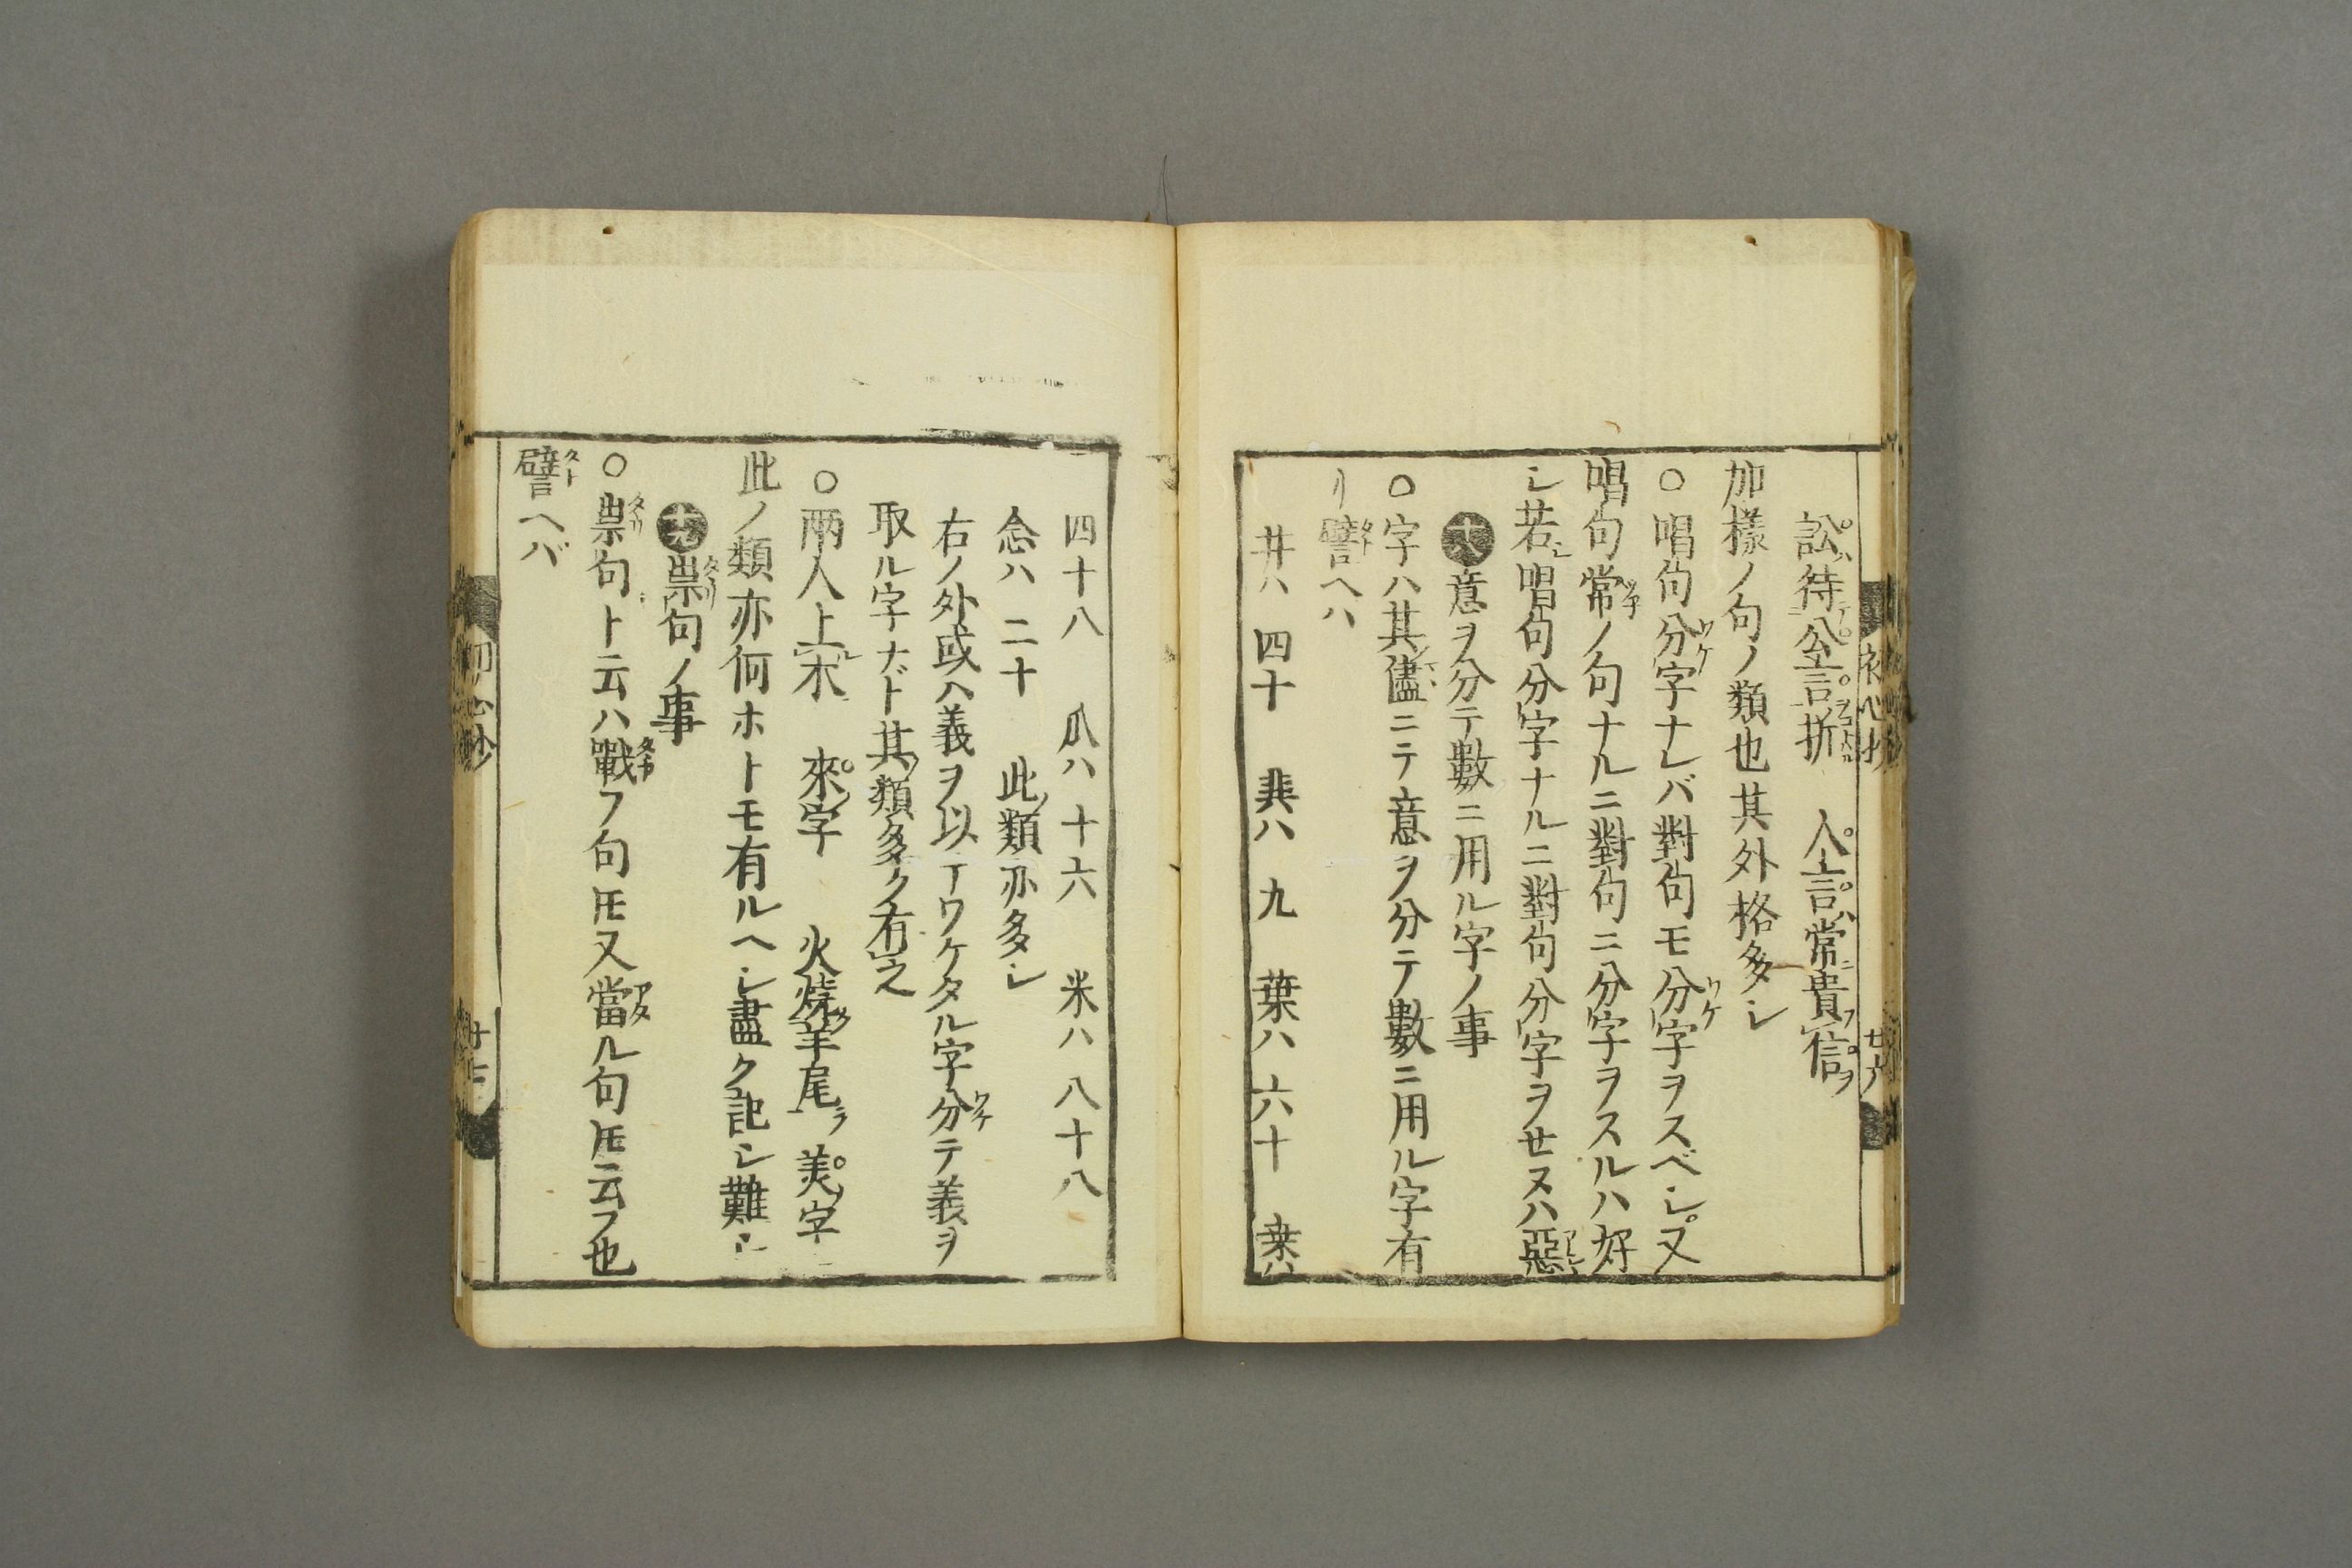 訟ハ待公言折　人言ハ常ニ貴フ信ヲ
加樣ノ句ノ類也其外格多シ
○唱句分字ナレバ對句モ分字ヲスベシ又
唱句常ノ句ナルニ對句ニ分字ヲスルハ好
シ若シ唱句分字ナルニ對句分字ヲセヌハ惡
十八意ヲ分テ數ニ用ル字ノ事
○字ハ其儘ニテ意ヲ分テ數ニ用ル字有
リ譬ヘハ
丼ハ　四十　韭ハ　九　葉ハ　六十　桒ハ
四十八　瓜ハ　十六　米ハ　八十八
念ハ　二十　此類亦多シ
右ノ外或ヘ義ヲ以テワケタル字分テ義ヲ
取ル字ナド其類多ク有之
○兩人上木　來字　火燒羊尾　美字
此ノ類亦何ホトモ有ルヘシ盡ク記シ難シ
十九祟句ノ事
○祟句ト云ハ戰フ句𪜈又當ル句𪜈云フ也
譬ヘバ